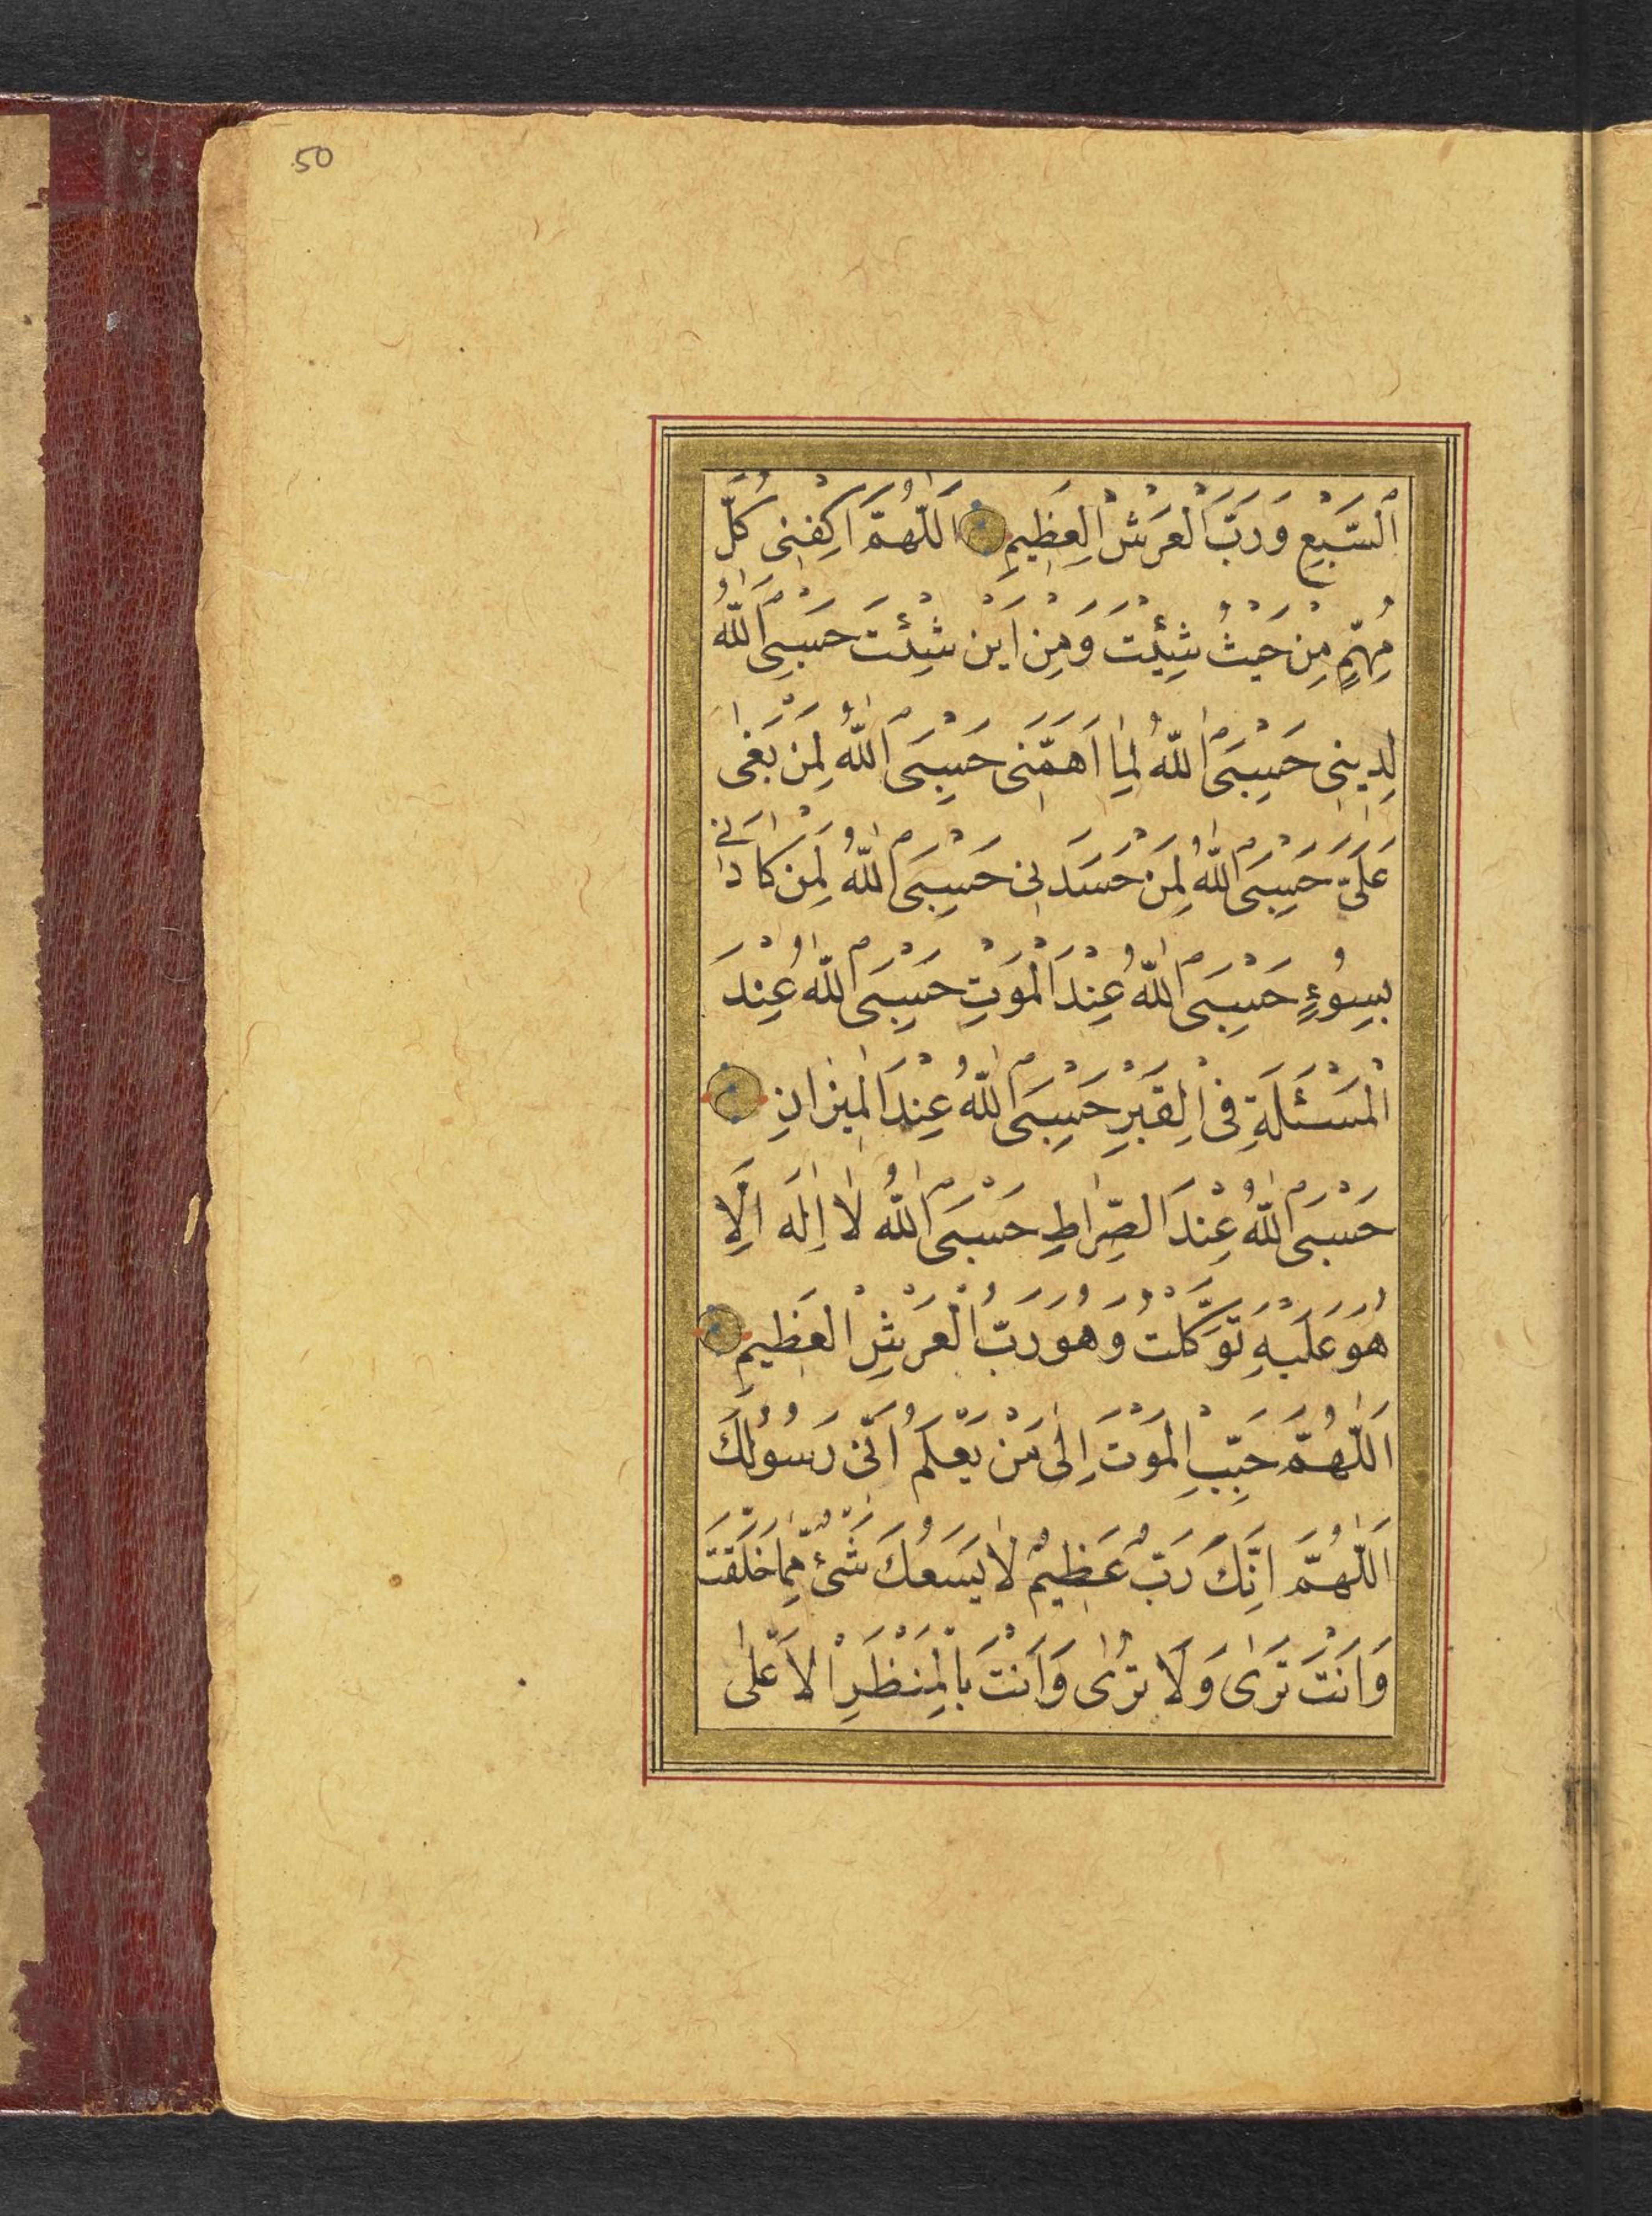 50
اَلسَّبْعِ وَرَبَّ الْعَرْشِ الْعَظِيمِ اَللّٰهُمَّ اكْفِنِى كُلَّ
مُهِمٍّ مِنْ حَيْثُ شِئْتَ وَمِنْ اَيْنَ شِئْتَ حَسْبِىَ اللّٰهُ
لِدِينِى حَسْبِىَ اللّٰهُ لِمَا اَهَمَّنِى حَسْبِىَ اللّٰهُ لِمَنْ بَغٰى
عَلَىَّ حَسْبِىَ اللّٰهُ لِمَنْ حَسَدَنِى حَسْبِىَ اللّٰهُ لِمَنْ كَادَنِى
بِسُوءٍ حَسْبِىَ اللّٰهُ عِنْدَ الْمَوْتِ حَسْبِىَ اللّٰهُ عِنْدَ
الْمَسْئَلَةِ فِى الْقَبْرِ حَسْبِىَ اللّٰهُ عِنْدَ الْمِيزَانِ
حَسْبِىَ اللّٰهُ عِنْدَ الصِّرَاطِ حَسْبِىَ اللّٰهُ لَا اِلٰهَ اِلَّا
هُوَ عَلَيْهِ تَوَكَّلْتُ وَهُوَ رَبُّ الْعَرْشِ الْعَظِيمِ
اَللّٰهُمَّ حَبِّبِ الْمَوْتَ اِلٰى مَنْ يَعْلَمُ اَنِّى رَسُولُكَ
اَللّٰهُمَّ اِنَّكَ رَبٌّ عَظِيمٌ لَا يَسَعُكَ شَىْءٌ مِمَّا خَلَقْتَ
وَاَنْتَ تَرٰى وَلَا تُرٰى وَاَنْتَ بِالْمَنْظَرِ الْاَعْلٰى